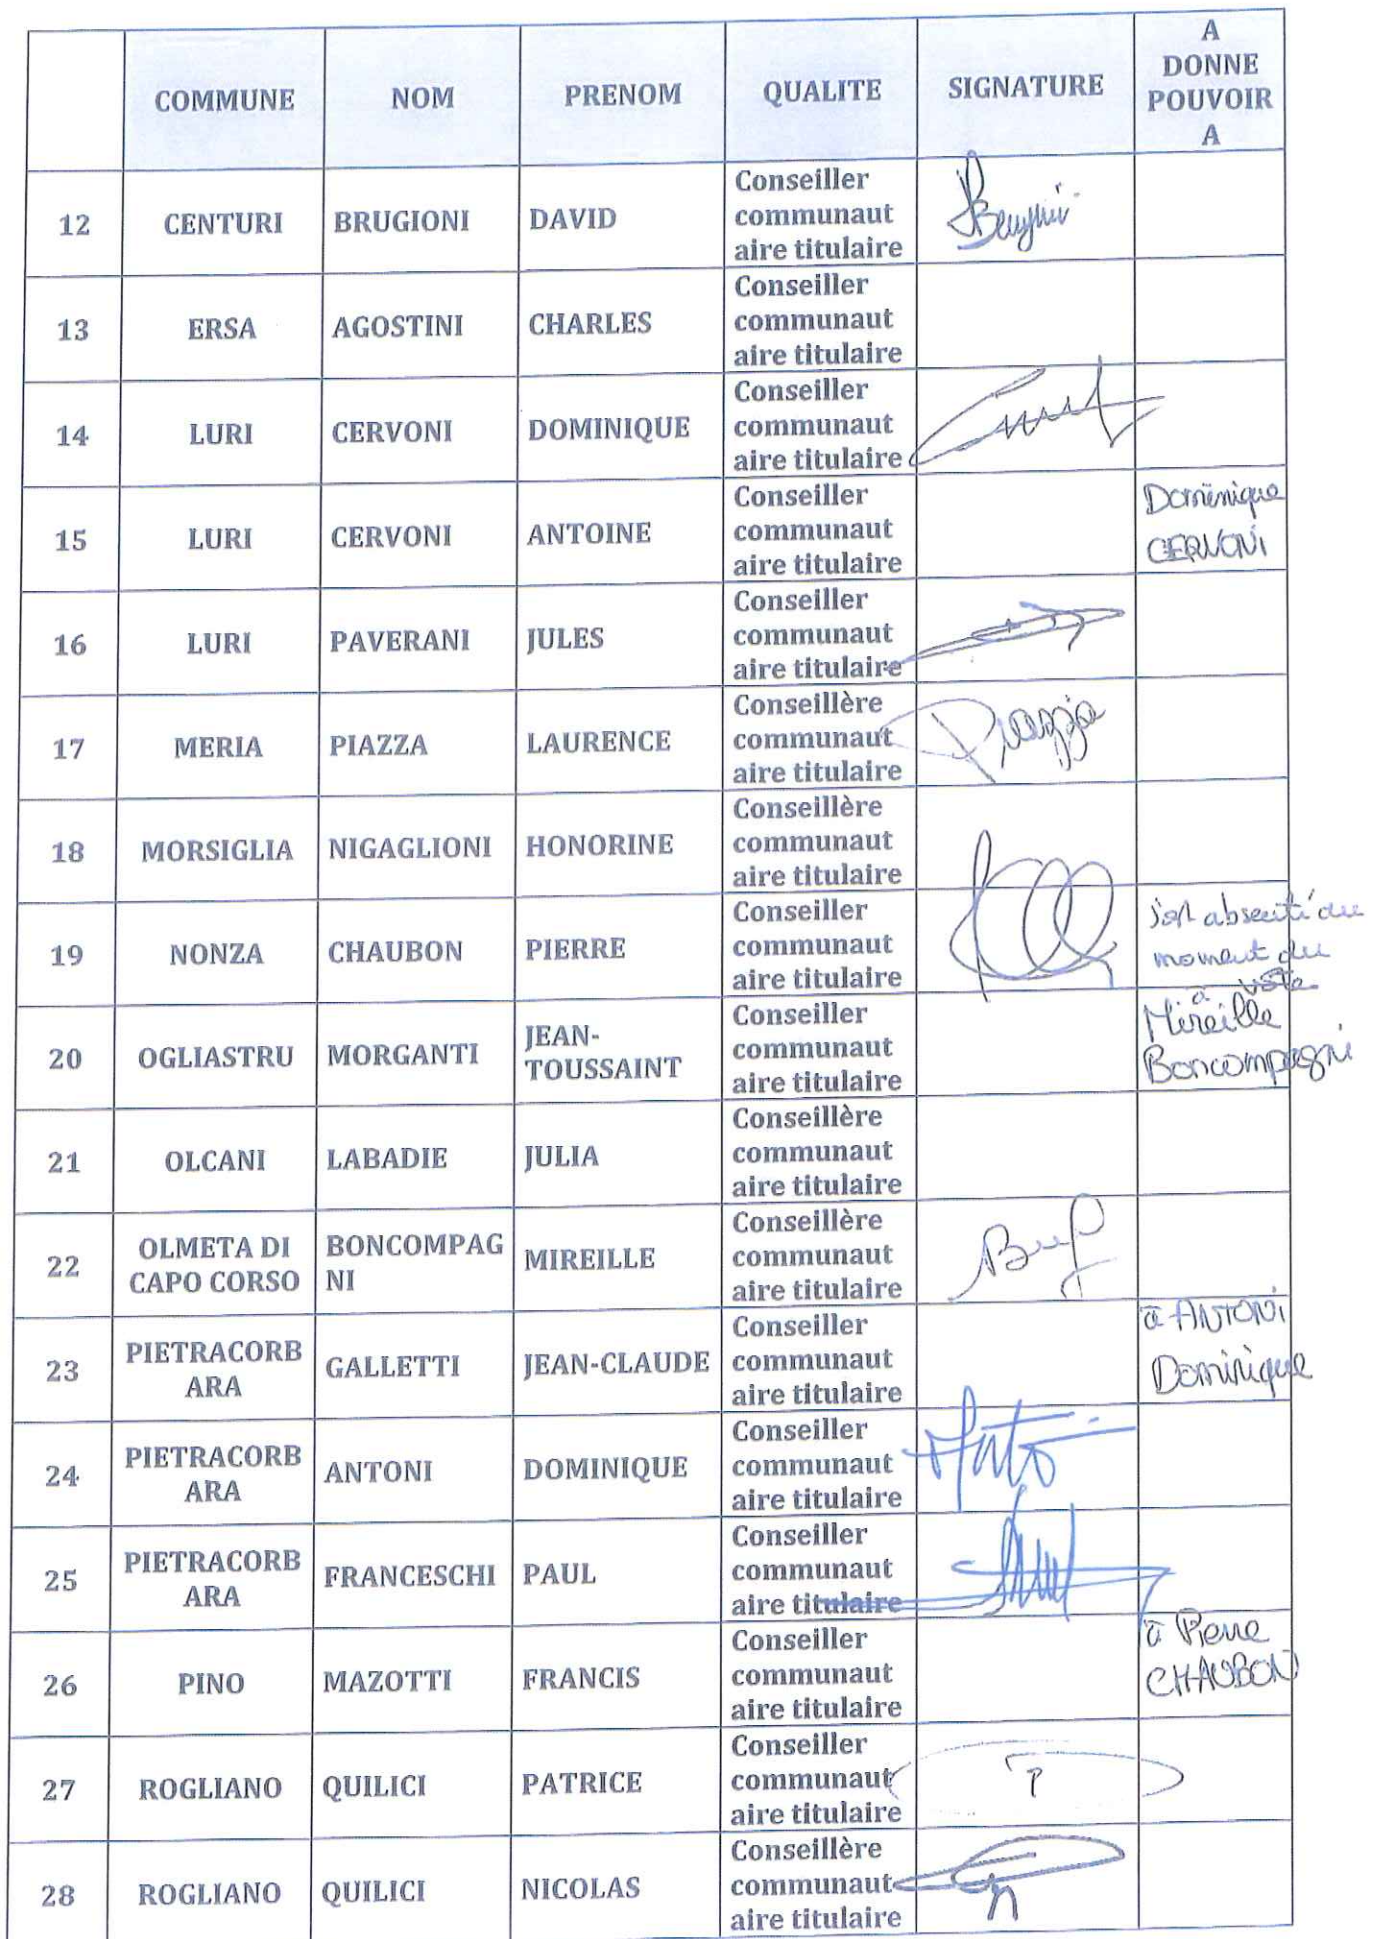 COMMUNE NOM PRENOM QUALITE SIGNATURE A
DONNE
POUVOIR
A
12 CENTURI BRUGIONI DAVID Conseiller
communaut
aire titulaire
13 ERSA AGOSTINI CHARLES Conseiller
communaut
aire titulaire
14 LURI CERVONI DOMINIQUE Conseiller
communaut
aire titulaire
15 LURI CERVONI ANTOINE Conseiller
communaut
aire titulaire
Dominique
CERVONI
16 LURI PAVERANI JULES Conseiller
communaut
aire titulaire
17 MERIA PIAZZA LAURENCE Conseillère
communaut
aire titulaire
Piazza
18 MORSIGLIA NIGAGLIONI HONORINE Conseillère
communaut
aire titulaire
19 NONZA CHAUBON PIERRE Conseiller
communaut
aire titulaire
s'est absenté au
moment du
vote
20 OGLIASTRU MORGANTI JEAN-
TOUSSAINT
Conseiller
communaut
aire titulaire
à
Mireille
Boncompagni
21 OLCANI LABADIE JULIA Conseillère
communaut
aire titulaire
22 OLMETA DI
CAPO CORSO
BONCOMPAG
NI
MIREILLE Conseillère
communaut
aire titulaire
23 PIETRACORB
ARA
GALLETTI JEAN-CLAUDE Conseiller
communaut
aire titulaire
à ANTONI
Dominique
24 PIETRACORB
ARA
ANTONI DOMINIQUE Conseiller
communaut
aire titulaire
25 PIETRACORB
ARA
FRANCESCHI PAUL Conseiller
communaut
aire titulaire
26 PINO MAZOTTI FRANCIS Conseiller
communaut
aire titulaire
à Pierre
CHAUBON
27 ROGLIANO QUILICI PATRICE Conseiller
communaut
aire titulaire
28 ROGLIANO QUILICI NICOLAS Conseillère
communaut
aire titulaire